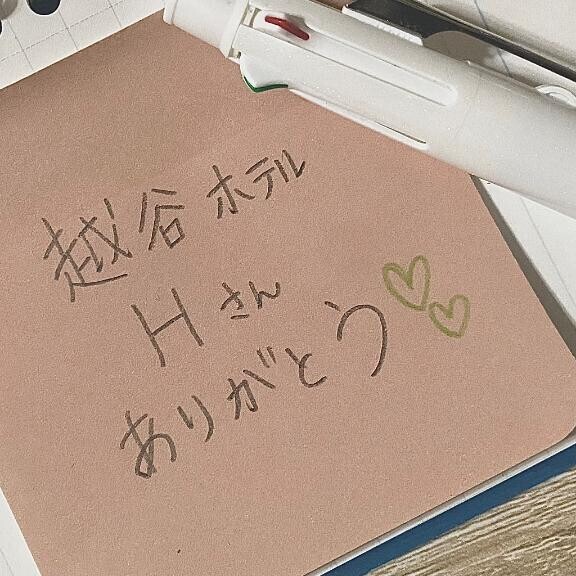 越谷 ホテル
H さん
ありがとう